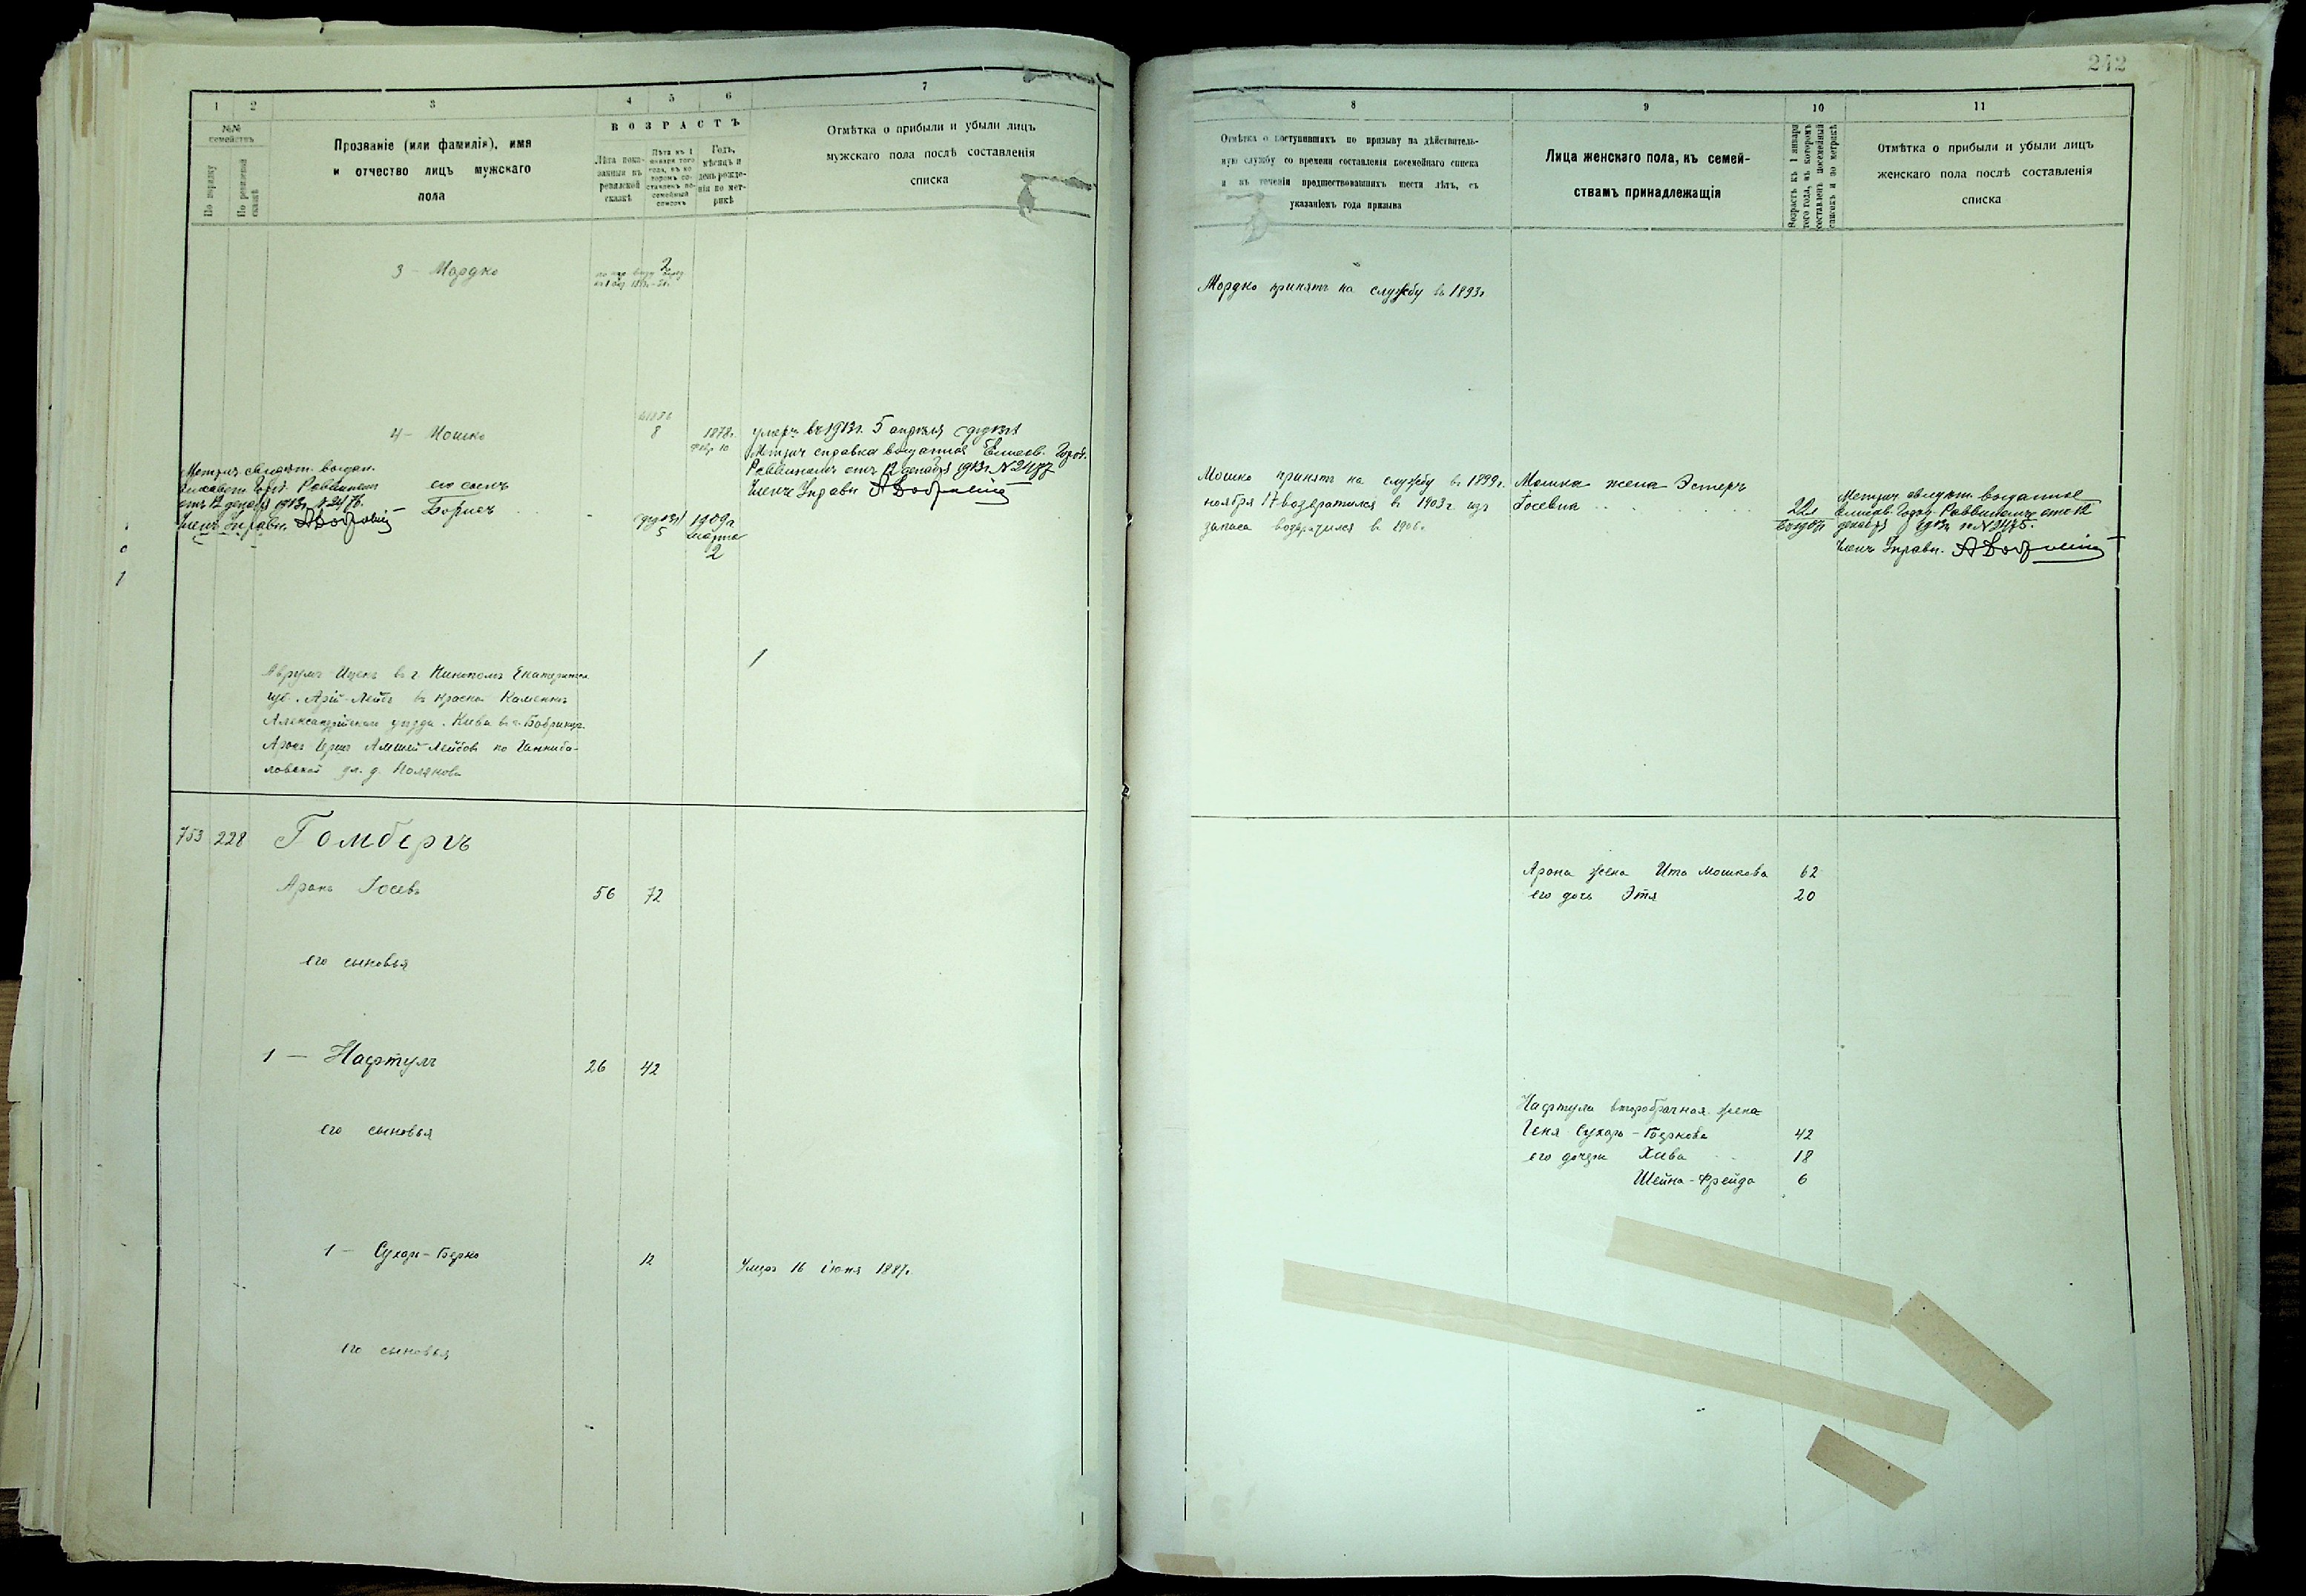 242
1 2 3 4 5 6 7
№№ семействъ
По порядку
По ревизской сказкѣ
Прозваніе (или фамилія), имя
и отчество лицъ мужскаго
пола
ВОЗРАСТЪ
Лѣта пока-
занныя въ
ревизской
сказкѣ
Лѣта къ 1
января того
года, въ ко-
торомъ со-
ставленъ по-
семейный
списокъ
Годъ,
мѣсяцъ и
день рожде-
нія по мет-
рикѣ
Отмѣтка о прибыли и убыли лицъ
мужскаго пола послѣ составленія
списка
3 - Мордко
2
4 - Мошко
8
1878г.
февр. 10
умеръ въ 1913г. 5 апрѣля
Метрич справка выданная Елисав. Город.
Раввиномъ отъ 12 декабря 1913г. N 2477
Членъ Управы
Метрич. свидѣт. выдан.
Елисавет Город. Раввиномъ
отъ 12 декабря 1913г. N 2476.
Членъ Управы.
его сынъ
Борисъ
5
1909г.
марта
2
1
Аврумъ Ицекъ въ г. Никополѣ Екатеринос.
губ. Арій-Лейбъ въ Красной Каменкѣ
Александрійскаго уѣзда. Кива въ г. Бобринцѣ.
ловской ул. д. Полякова
753 228 Гомбергъ
Аронъ Іосевъ 56 72
его сыновья
1 — Нафтулъ 26 42
его сыновья
1 — Сухоръ-Берко 12 Умеръ 16 іюня 1887г.
его сыновья
8 9 10 11
Отмѣтка о поступившихъ по призыву на дѣйствитель-
ную службу со времени составленія посемейнаго списка
и въ теченіи предшествовавшихъ шести лѣтъ, съ
указаніемъ года призыва
Лица женскаго пола, къ семей-
ствамъ принадлежащія
Возрастъ къ 1 января
того года, въ которомъ
составленъ посемейный
списокъ и по метрикѣ
Отмѣтка о прибыли и убыли лицъ
женскаго пола послѣ составленія
списка
Мордко принятъ на службу въ 1893г
Мошко принятъ на службу въ 1899г.
ноября 17 возвратился въ 1903г. изъ
запаса возвратился въ 1906г.
Мошка жена Эстеръ
Іосевна
22
Метрич. свидѣт. выданное
Елисав. Город. Раввиномъ отъ 12
декабря 1913г. N 2475.
Членъ Управы.
Арона жена Ита Мошкова 62
его дочь Этя 20
Нафтула второбрачная жена
Геня Сухоръ-Беркова 42
его дочери Хива 18
Шейна-Фрейда 6